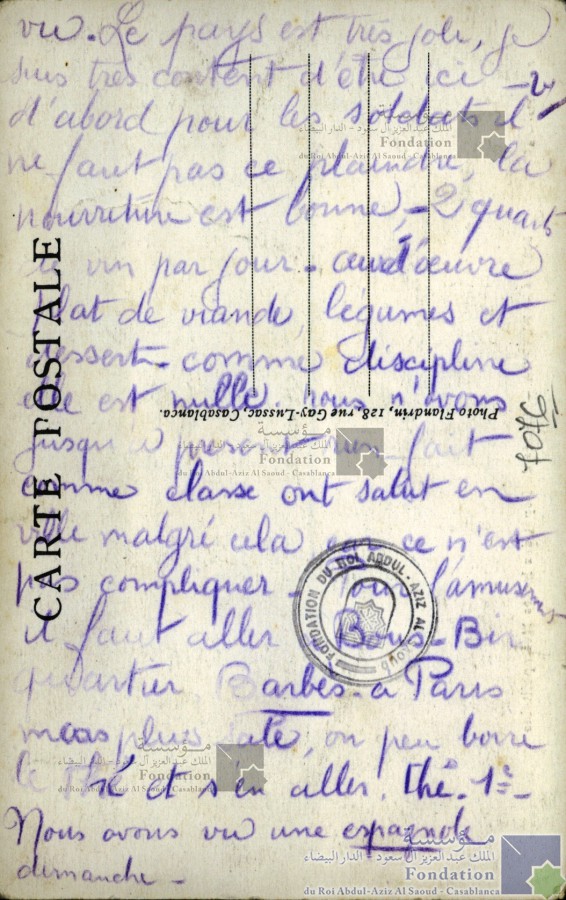 vu. Le pays est très joli, je
suis très content d'être ici
d'abord pour les soldats il
ne faut pas ce plaindre, la
nourriture est bonne, 2 quarts
de vin par jour. d'œuvre
Plat de viande, légumes et
dessert. comme discipline
elle est nulle. nous n'avons
jusqu'à présent rien fait
comme classe ont salut en
ville malgré cela ce n'est
pas compliquer. Pour s'amuser
il faut aller Bous-Bir
quartier Barbès à Paris
mais plus sale, on peu boire
le thé et s'en aller. thé. 1
Nous avons vu une espagnole
dimanche -
CARTE POSTALE
Photo Flandrin, 128, rue Gay-Lussac, Casablanca.
7076
FONDATION DU ROI ABDUL-AZIZ AL SAOUD
مؤسسة
الملك عبدالعزيز آل سعود - الدار البيضاء
Fondation
du Roi Abdul-Aziz Al Saoud - Casablanca
مؤسسة
الملك عبدالعزيز آل سعود - الدار البيضاء
Fondation
du Roi Abdul-Aziz Al Saoud - Casablanca
مؤسسة
الملك عبدالعزيز آل سعود - الدار البيضاء
Fondation
du Roi Abdul-Aziz Al Saoud - Casablanca
مؤسسة
الملك عبدالعزيز آل سعود - الدار البيضاء
Fondation
du Roi Abdul-Aziz Al Saoud - Casablanca